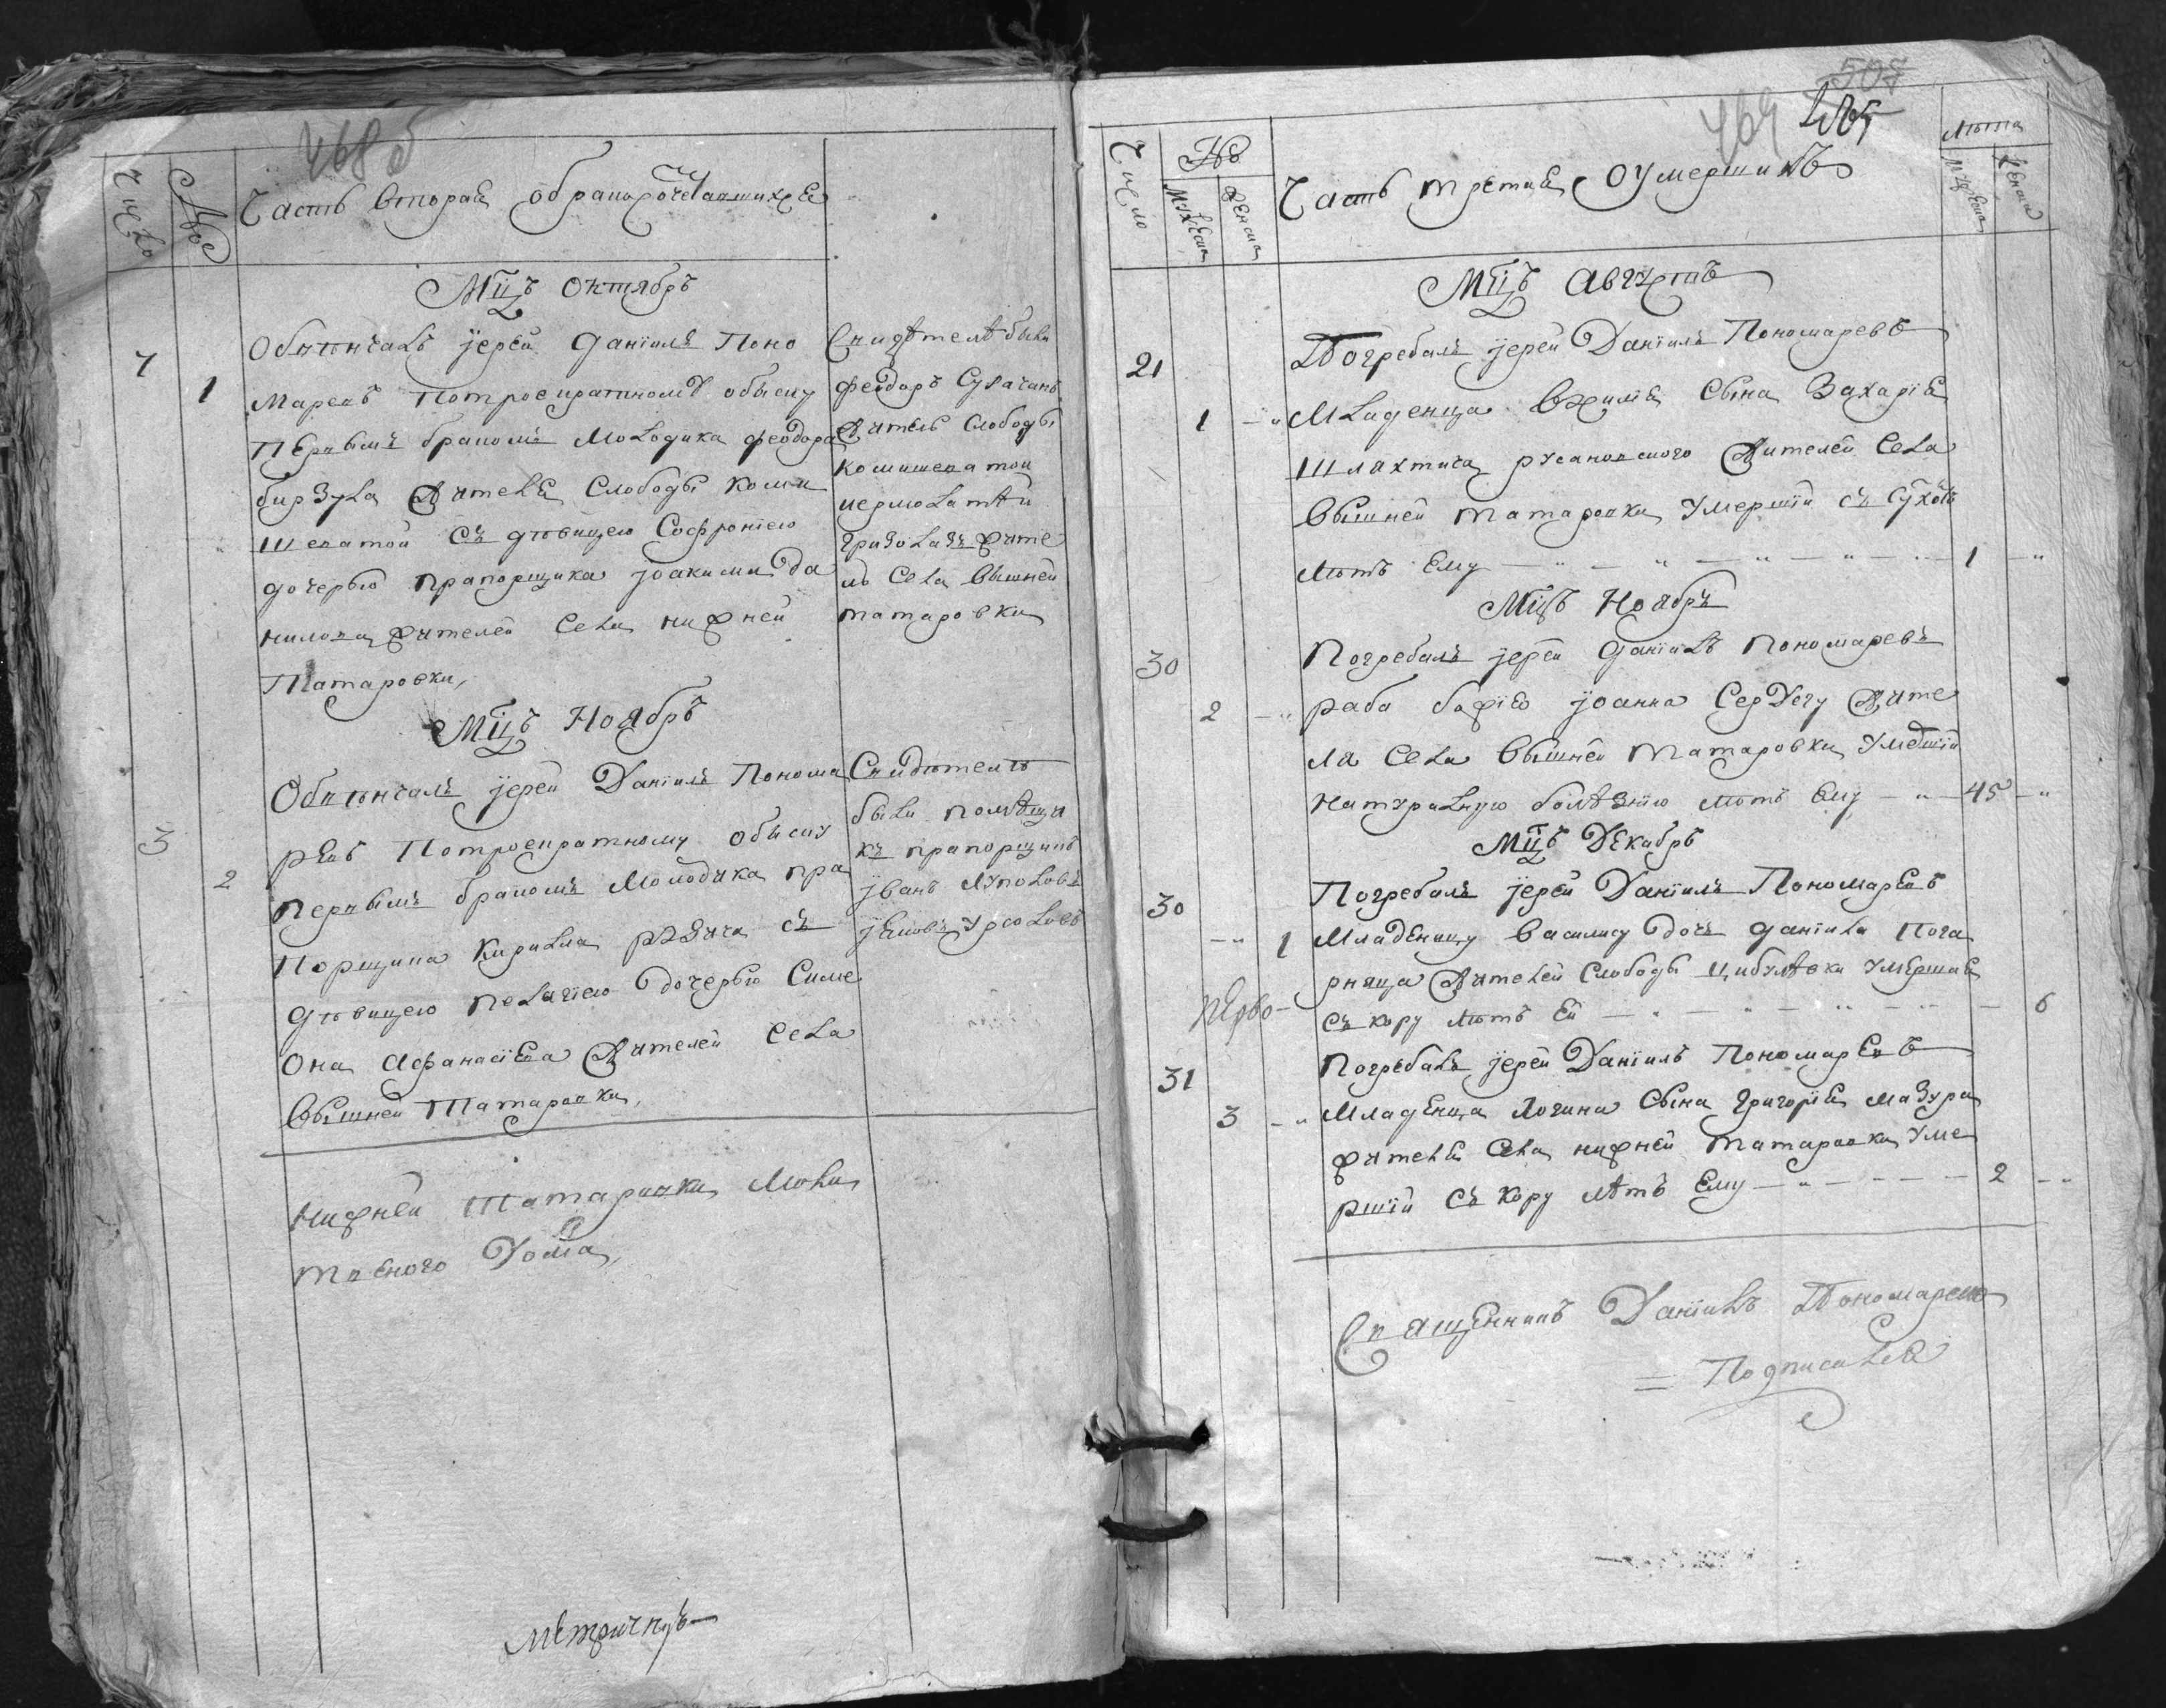 468 б
Число
№
Часть вторая о бракосочетавшихся
Мцъ Октябръ
7
1
Обвѣнчалъ іерей Даніилъ Поно
маревъ по троекратному обыску
первымъ бракомъ молодика Феодора
бирзула жителя слободы коми
шеватой съ дѣвицею Софроніею
дочерью прапорщика іоакима Да
нилова жителей села нижней
Татаровки,
Свидѣтелѣ были
феодоръ
житель слободы
комишеватой
жите
ль села вышней
татаровки
Мцъ Ноябръ
3
2
Обвѣнчалъ іерей Даніилъ Понома
ревъ по троекратному обыску
первымъ бракомъ молодика пра
порщика Кирилла съ
дѣвицею Пелагіею дочерью Симе
она Афанасіева жителей села
Вышней Татаровки,
Свидѣтель
были помѣщи
къ прапорщикъ
іванъ Луполовъ
іяковъ Урсоловъ
нижней Татаровки Моли
твеного Дома,
метричнуъ
507
469
Число
№
Мужеска
Женска
Часть третия о умершихъ
лѣта
Мужеска
Женска
Мцъ Августъ
21
1 - „
Погребалъ іерей Даніилъ Пономаревъ
Младенца сына Захарія
Шляхтича жителей села
вышней татаровки умершій съ сухотъ
лѣтъ ему 1 - „
Мцъ Ноябръ
30
2 - „
Погребалъ іерей Даніилъ Пономаревъ
раба божіего іоанна Сердегу жите
ля села вышней татаровки умершій
натуралную болѣзнію лѣтъ ему - „ - 45 - „
Мцъ Декабръ
30
- „ 1
Погребалъ іерей Даніилъ Пономаревъ
Младеницу Василису дочь Даніила Пога
рняца жителей слободы цибулѣвки умершая
съ кору лѣтъ ей 6
31
3 - „
Погребалъ іерей Даніилъ Пономаревъ
Младенца Логина сына Григорія Мазура
жителя села нижней татаровки уме
ршій съ кору лѣтъ ему 2 - „
Священникъ Даніилъ Пономаревъ
= Подписался